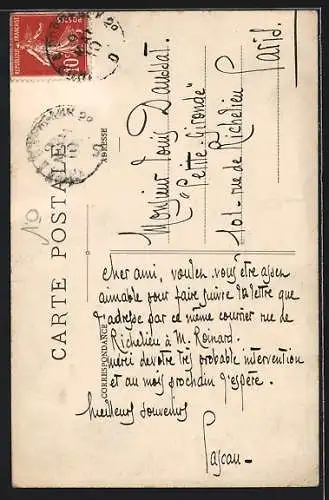 CARTE POSTALE
CORRESPONDANCE
ADRESSE
REPUBLIQUE FRANÇAISE
POSTES
10
Monsieur Louis Dausset.
"Petite Gironde"
101. rue de Richelieu
Paris.
cher ami, voulez vous être assez
aimable pour faire suivre la lettre que
j'adresse par ce même courrier rue de
Richelieu à M. Roinard.
merci de votre très probable intervention
et au mois prochain j'espère.
meilleurs souvenirs